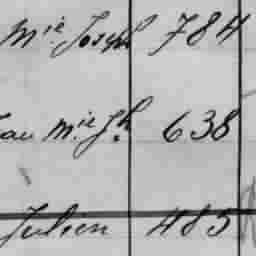 Mie Joseph 784
au mie Jh 638
Julien 485